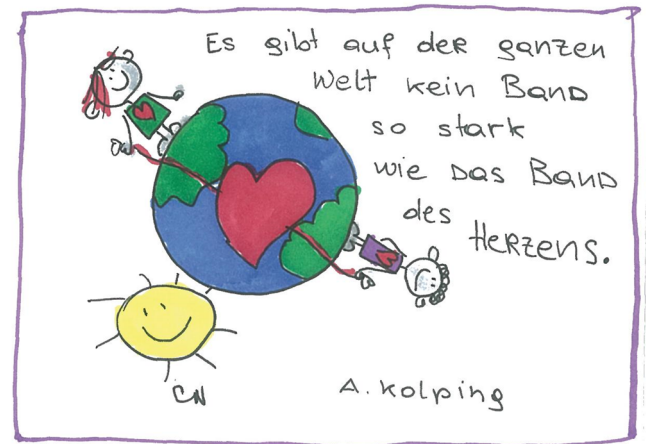 Es gibt auf der ganzen
Welt kein Band
so stark
wie das Band
des
Herzens.
CN
A. Kolping